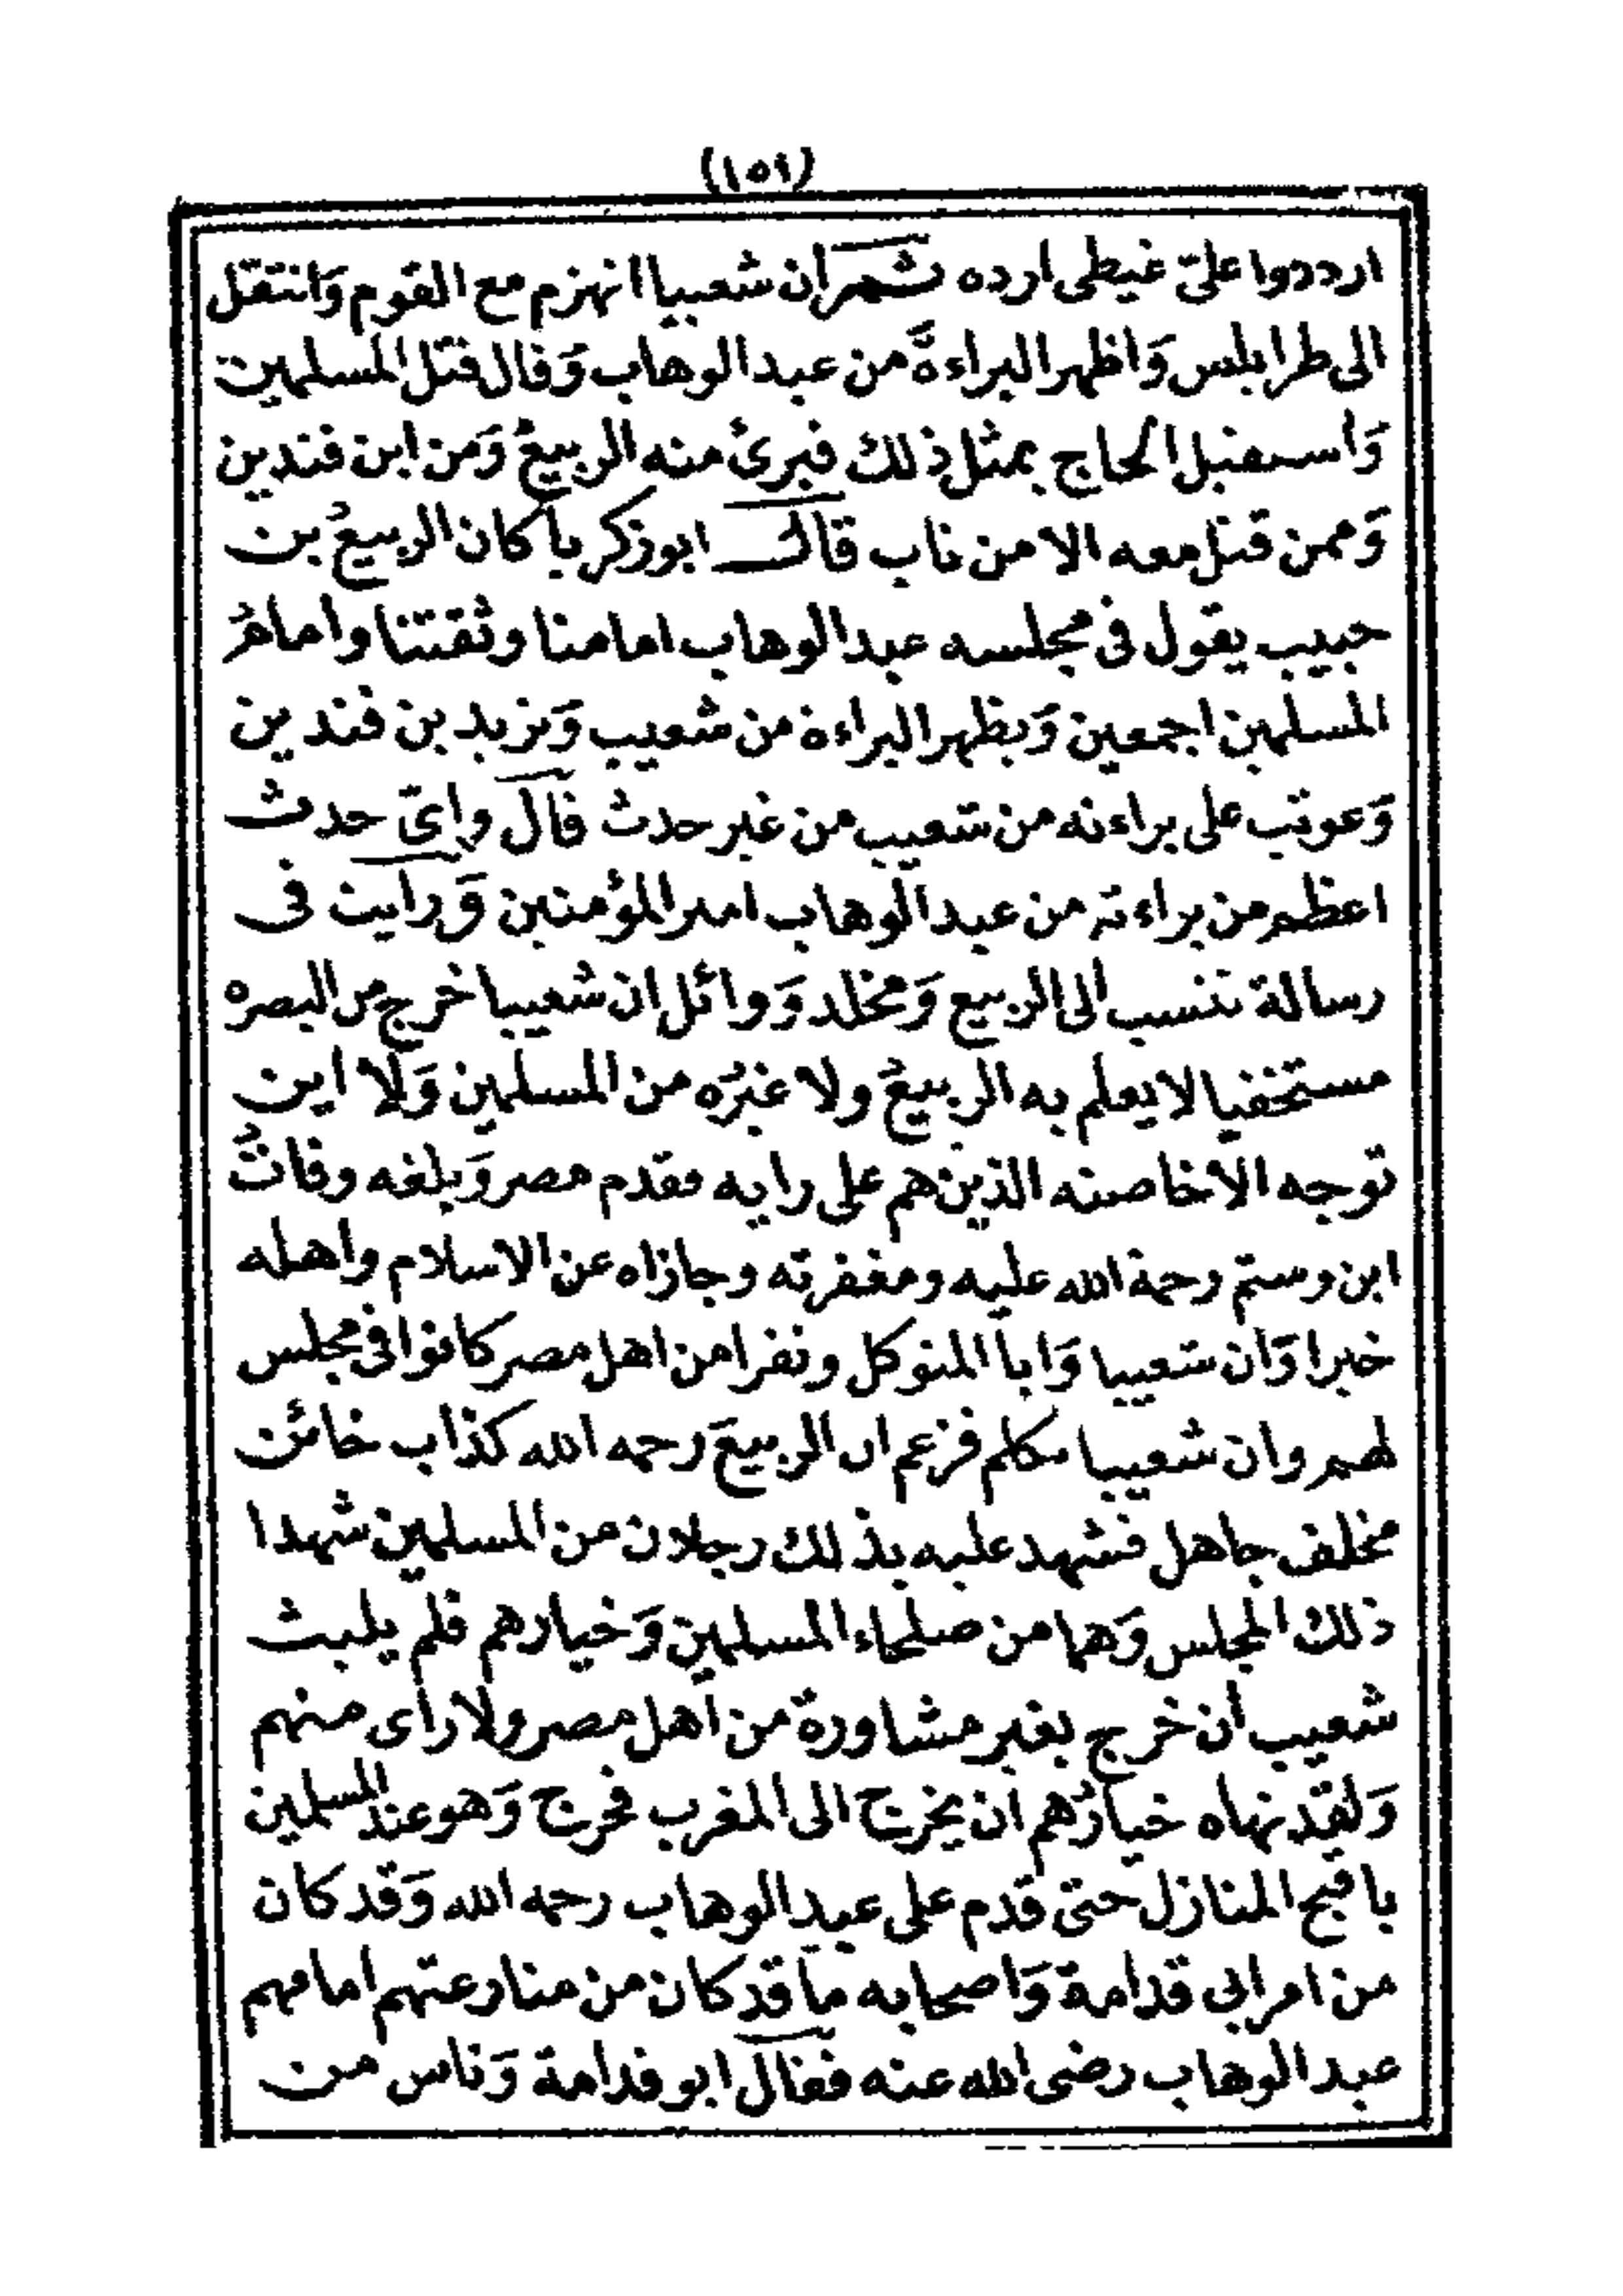 (١٥١)
ارددوا علىّ غيظى ارده ثـم ان شعيبا انهزم مع القوم وَانتقل
الى طرابلس وَاظهر البراءةَ من عبد الوهاب وَقال قتل المسلمين
وَاستقبل الحاج بمثل ذلك فبرئ منه الربيعُ وَمن ابن فندين
وَممن قتل معه الا من تاب قال ابو زكرياَ كان الربيعُ بن
حبيب يقول فى مجلسه عبد الوهاب امامنا وثقتنا وامامُ
المسلمين اجمعين وَيظهر البراءة من شعيب وَيزيد بن فندين
وَعوتب على براءته من شعيب من غير حدث قال واىّ حدث
اعظم من براءته من عبد الوهاب امير المؤمنين وَ رايت فى
رسالة تنسب الى الربيع وَمخلد وَ وائل ان شعيبا خرج من البصره
مستخفيا لا يعلم به الربيعُ ولا غيرُه من المسلمين وَلا اين
توجه الا خاصته الذين هم على رايه فقدم مصر وَبلغه وفاتُ
ابن رستم رحمة الله عليه ومغفرته وجازاه عن الاسلام واهله
خيرا وَان شعيبا وَابا المتوكل ونفرا من اهل مصر كانوا فى مجلس
لهم وان شعيبا تكلم فزعم ان الربيعَ رحمه الله كذاب خائن
مخلف جاهل فشهد عليه بذلك رجلان من المسلمين شهدا
ذلك المجلس وَهما من صلحاء المسلمين وَخيارهم فلم يلبث
شعيب ان خرج بغير مشاورة من اهل مصر ولا راى منهم
وَلقد نهاه خيارُهم ان يخرج الى المغرب فخرج وَهو عند المسلمين
باقبح المنازل حتى قدم على عبد الوهاب رحمه الله وَقد كان
من امر ابى قدامة وَاصحابه ما قد كان من منازعتهم امامهم
عبد الوهاب رضى الله عنه فقال ابو قدامة وَناس من